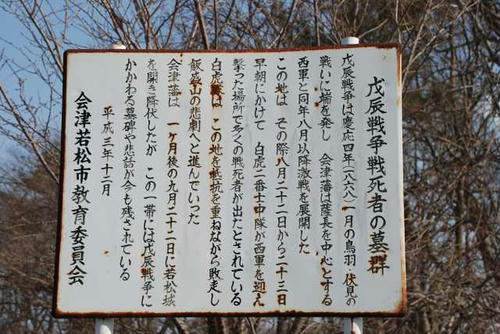 戊辰戦争戦死者の墓群
戊辰戦争は慶応四年（一八六八）一月の鳥羽、伏見の
戦いに端を発し　会津藩は薩長を中心とする
西軍と同年八月以降激戦を展開した
この地は　その際八月二十二日から二十三日
早朝にかけて　白虎二番士中隊が西軍を迎え
撃った場所で多くの戦死者が出たとされている
白虎隊は　この地を抵抗を重ねながら敗走し
飯盛山の悲劇へと進んでいった
会津藩は　一ヶ月後の九月二十二日に若松城
を開き降伏したが　この一帯には戊辰戦争に
かかわる墓碑や悲話が今も残されている
平成三年十二月
会津若松市教育委員会